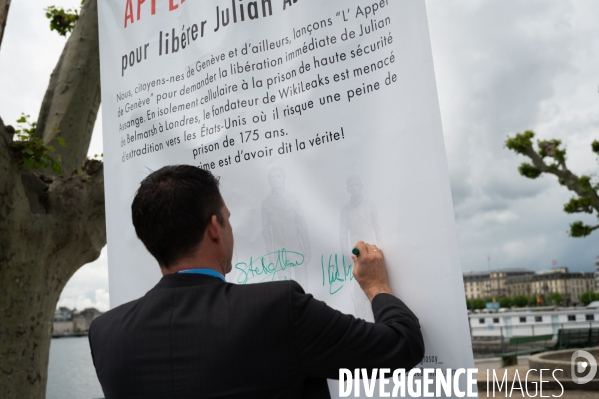 pour libérer Julian
Nous, citoyens-nes de Genève et d'ailleurs, lançons "L' Appel
de Genève" pour demander la libération immédiate de Julian
Assange. En isolement cellulaire à la prison de haute sécurité
de Belmarsh à Londres, le fondateur de WikiLeaks est menacé
d'extradition vers les États-Unis où il risque une peine de
prison de 175 ans.
d'avoir dit la vérite!
DIVERGENCE IMAGES